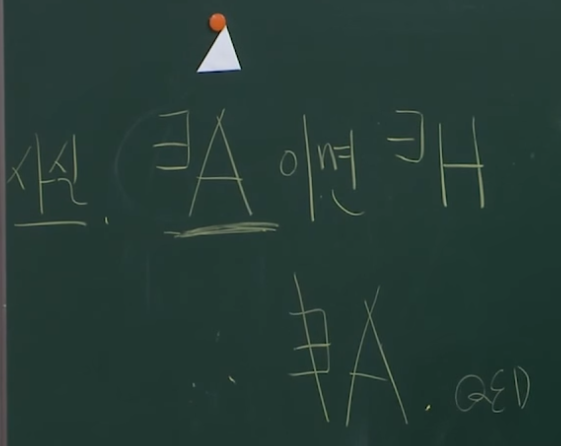 사실. ∃A 이면 ∃H
∴ ∄A. QED